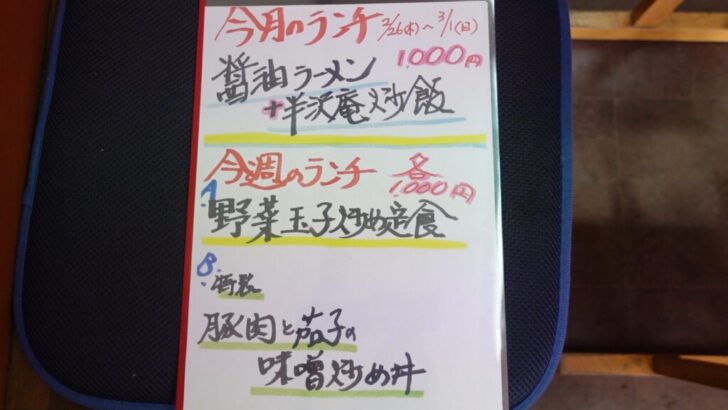 今月のランチ 2/26(木)～3/1(日)
1000円
醤油ラーメン
+半沢庵炒飯
今週のランチ 各1,000円
A.
野菜玉子炒め定食
B.
特製
豚肉と茄子の
味噌炒め丼